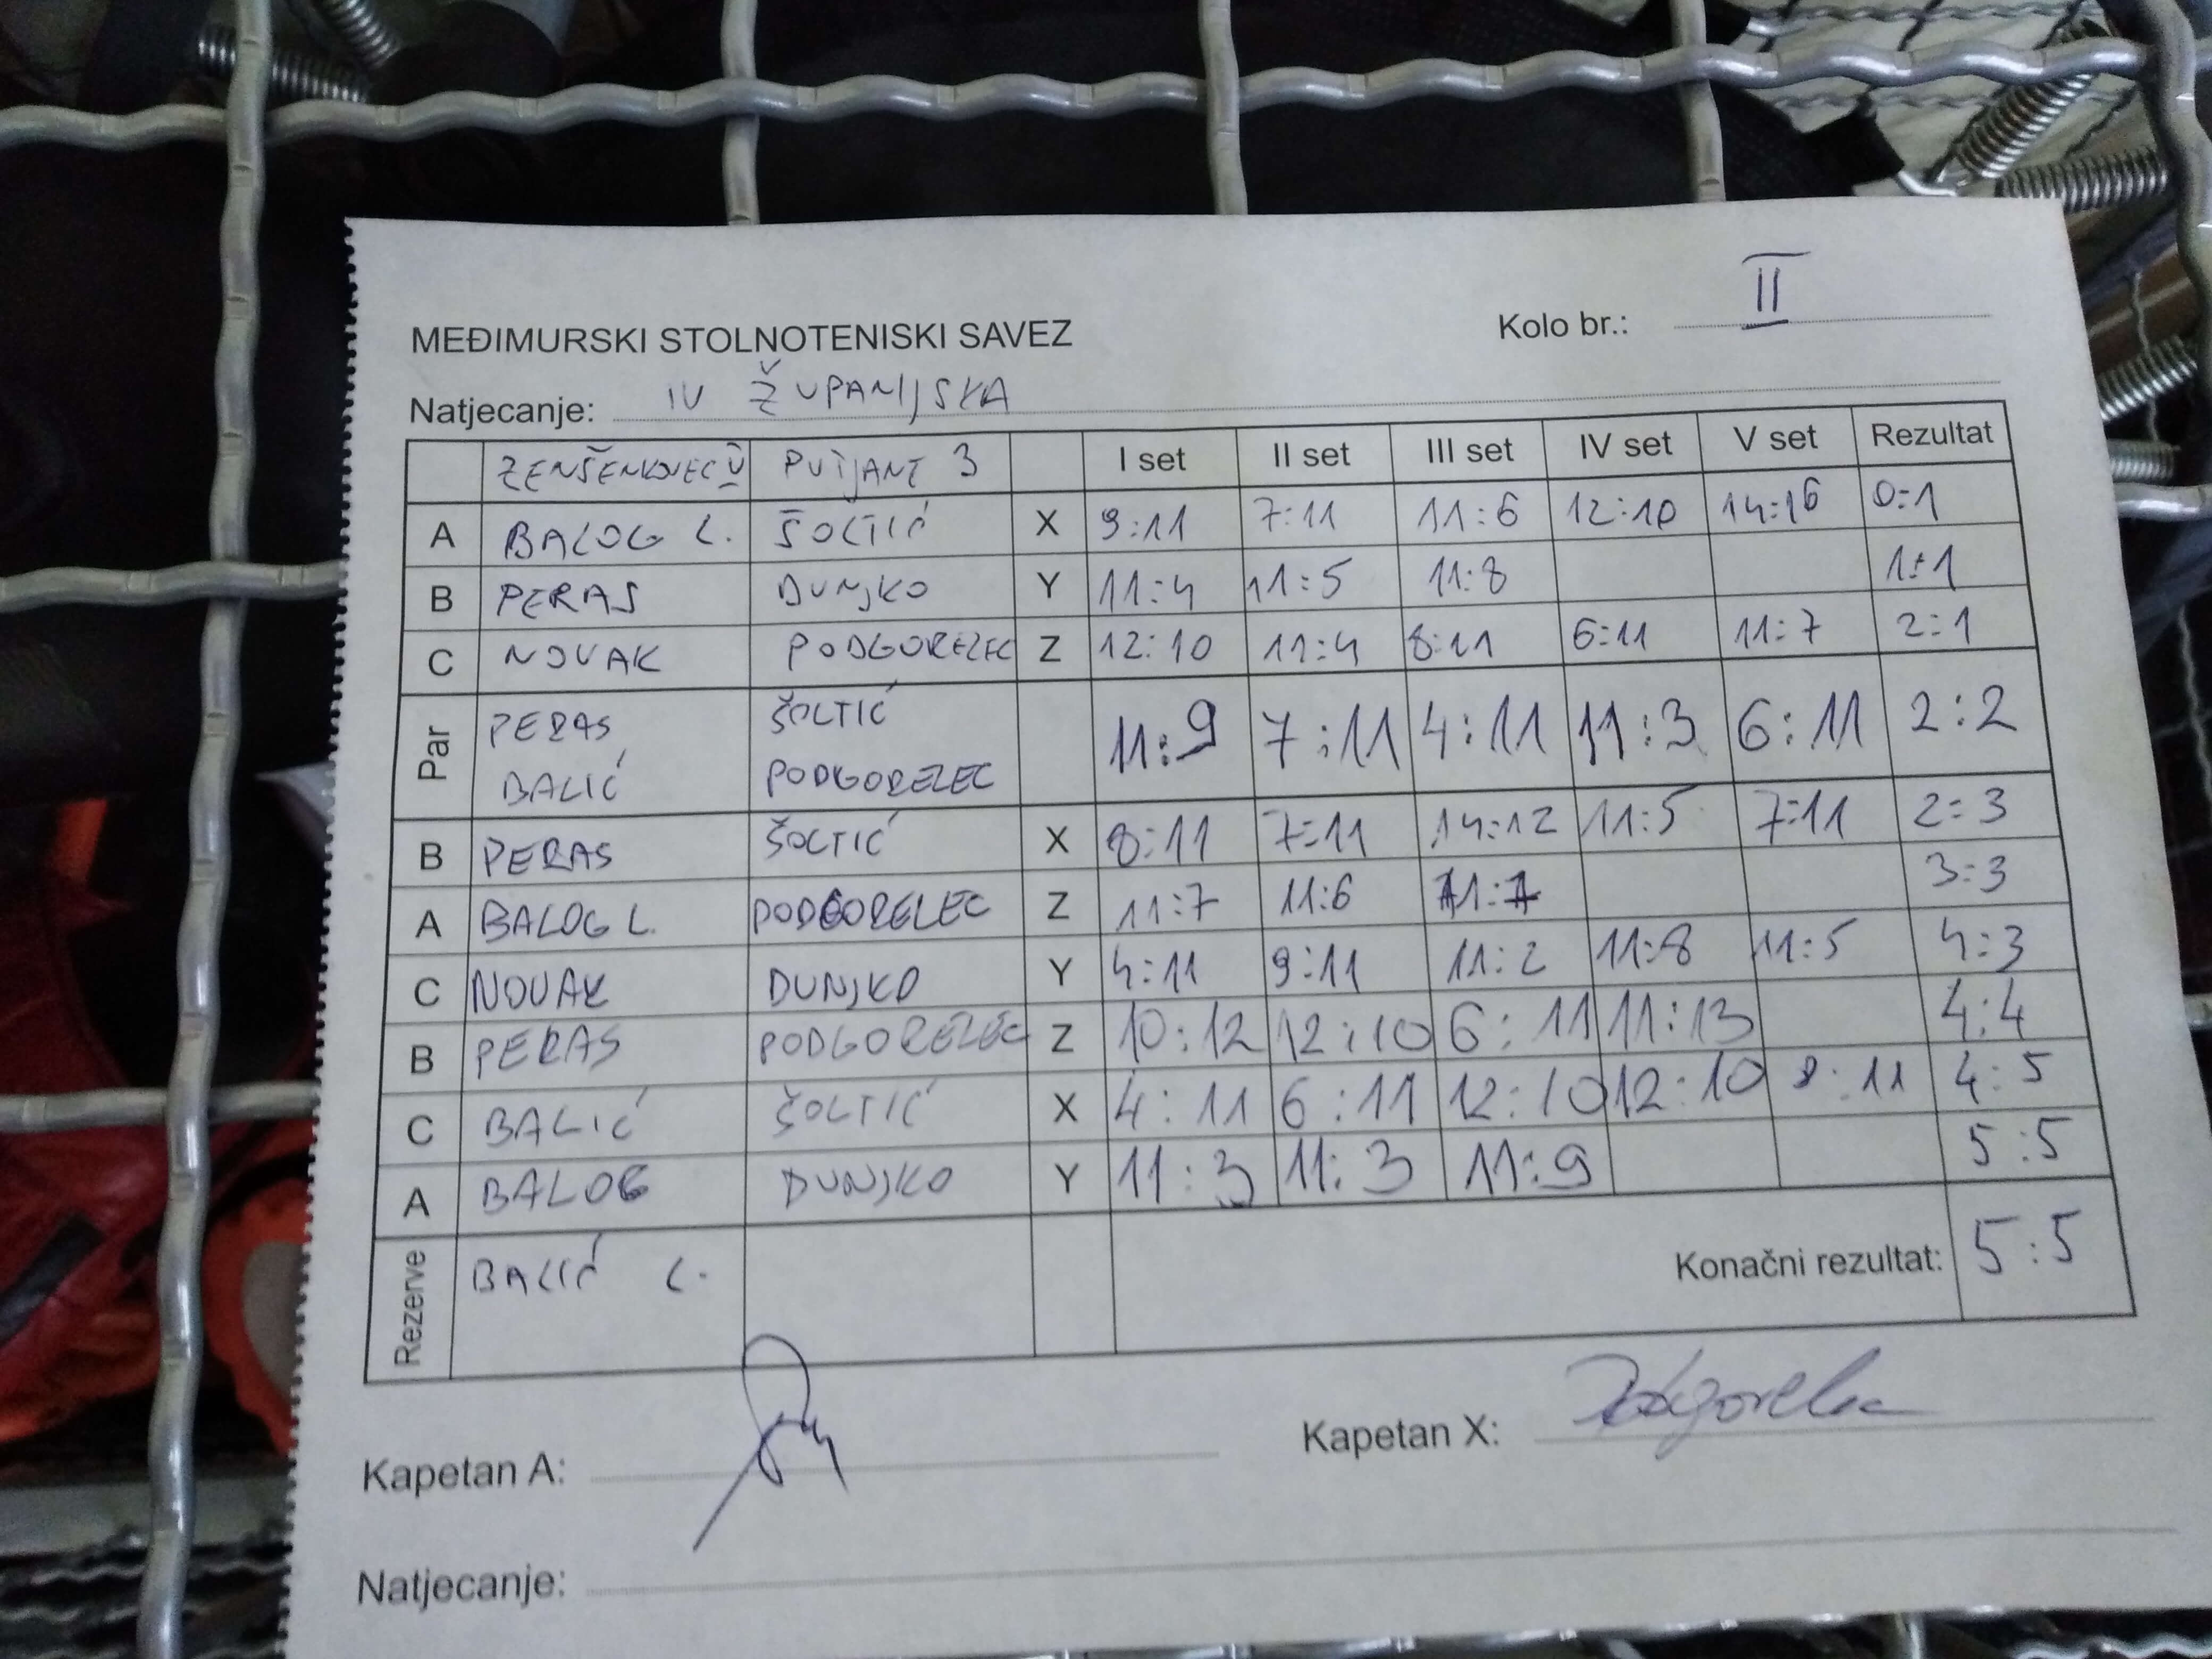 MEĐIMURSKI STOLNOTENISKI SAVEZ Kolo br.: II
Natjecanje: IV ŽUPANIJSKA
PUŠĆANE 3 I set II set III set IV set V set Rezultat
A BALOG L. ŠOLTIĆ X 9:11 7:11 11:6 12:10 14:16 0:1
B PERAS DUNJKO Y 11:4 11:5 11:8 1:1
C NOVAK PODGORELEC Z 12:10 11:4 8:11 6:11 11:7 2:1
Par PERAS ŠOLTIĆ 11:9 7:11 4:11 11:3 6:11 2:2
BALIĆ PODGORELEC
B PERAS ŠOLTIĆ X 8:11 7:11 14:12 11:5 7:11 2:3
A BALOG L. PODGORELEC Z 11:7 11:6 11:7 3:3
C NOVAK DUNJKO Y 4:11 9:11 11:2 11:8 11:5 4:3
B PERAS PODGORELEC Z 10:12 12:10 6:11 11:13 4:4
C BALIĆ ŠOLTIĆ X 4:11 6:11 12:10 12:10 8:11 4:5
A BALOG DUNJKO Y 11:3 11:3 11:9 5:5
Rezerve BALIĆ L. Konačni rezultat: 5:5
Kapetan A: Kapetan X: Podgorelec
Natjecanje: